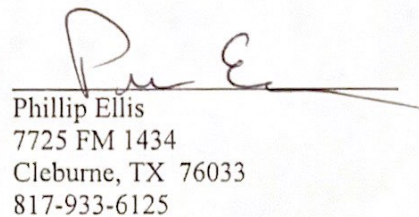 Phillip Ellis
7725 FM 1434
Cleburne, TX  76033
817-933-6125